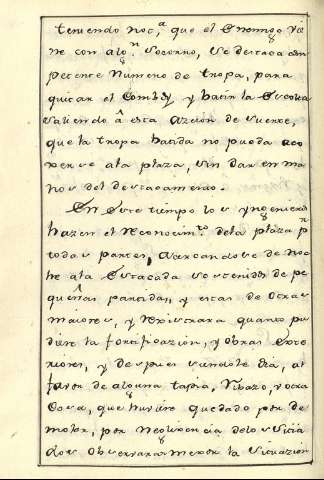 teniendo notª, que el Enemigo vie
ne con algⁿ Socorro, se destaca com
petente Numero de tropa, para
quitar el Comboy y batir la Escolta
saliendo â esta Azcion de suerte,
que la tropa batida no pueda aco
xerse ala plaza, sin dar en ma
nos del destacamento.
En este tiempo los yngenieros
hazen el Reconocimᵗᵒ dela plaza pʳ
todas partes, azercandose de no
he ala Estacada sostenidos de pe
queñas partidas, y estas de otras
maiores, y Rexistrara quanto pu
diere la fortificazion, y obras Exte
riores, y despues siendole dia, al
favor de alguna tapia, Ribazo, y otra
Cosa, que huviere quedado por de
moler, por neglixencia delos sitia
dos observaran mexor la situazion